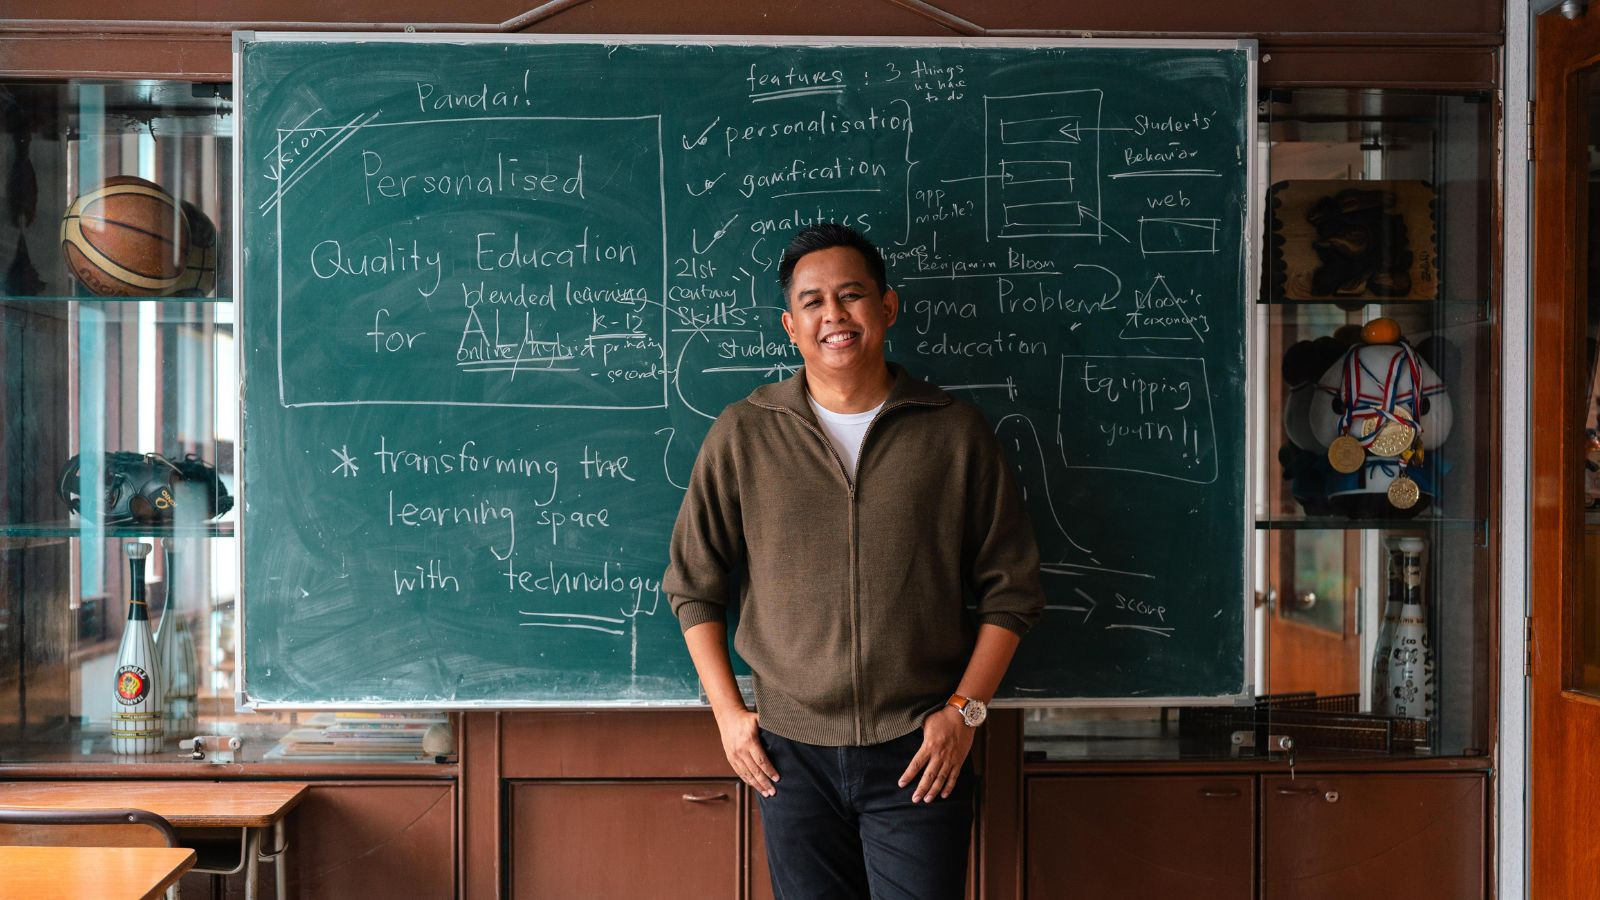 Pandai!
Vision
Personalised
Quality Education
blended learning
for ALL
K-12
online/hybrid primary
- secondary
* transforming the
learning space
with technology
features : 3 things
we have
to do
personalisation
gamification
analytics
app
mobile?
Students'
Behavior
web
21st
century
skills
Benjamin Bloom
igma Problem
Bloom's
Taxonomy
student
education
Equipping
youth!!
score